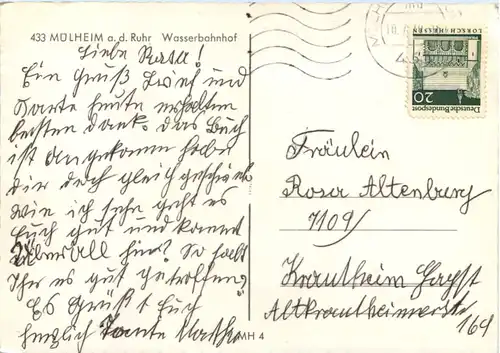 433 MÜLHEIM a. d. Ruhr Wasserbahnhof
Liebe Rosa!
Ein Gruß Brief und
Karte heute erhalten
besten Dank. das Buch
ist angekommen habe
dir doch gleich geschrieben
wie ich sehe geht es
Euch gut und kommt
überall hin? So habt
Ihr es gut getroffen?
Es Grüßt Euch
herzlich Tante Martha
MH 4
LORSCH · HESSEN
20
Deutsche Bundespost
Fräulein
Rosa Altenburg
7109/
Krautheim Jagst
Altkrautheimerstr
164